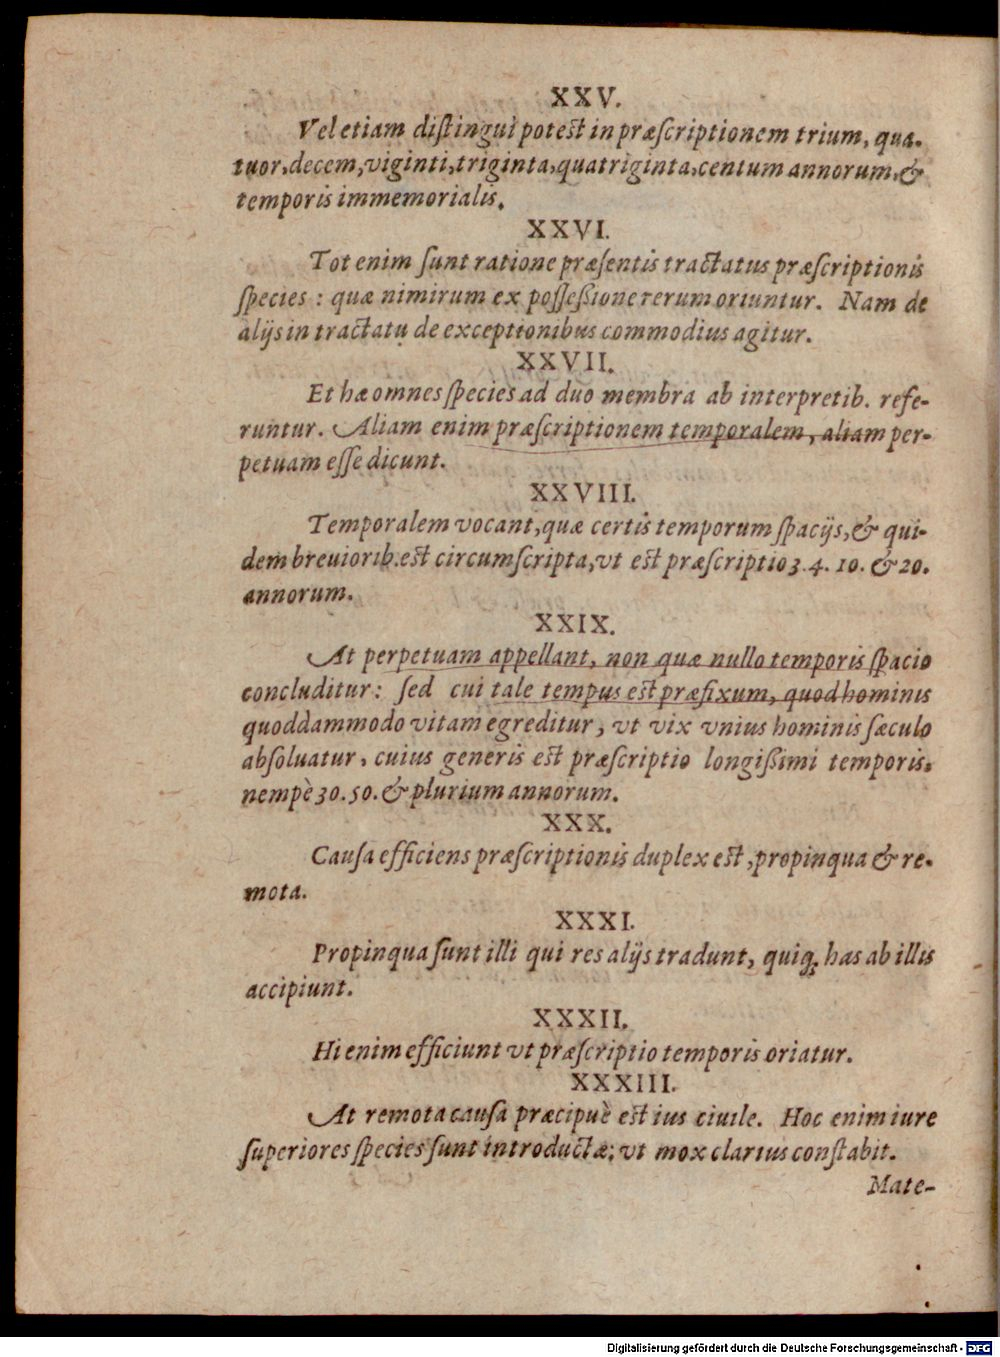 XXV.
Vel etiam distingui potest in præscriptionem trium, qua-
tuor, decem, viginti, triginta, quatriginta, centum annorum, &
temporis immemorialis.
XXVI.
Tot enim sunt ratione præsentis tractatus præscriptionis
species: quæ nimirum ex possessione rerum oriuntur. Nam de
alijs in tractatu de exceptionibus commodius agitur.
XXVII.
Et hæ omnes species ad duo membra ab interpretib. refe-
runtur. Aliam enim præscriptionem temporalem, aliam per-
petuam esse dicunt.
XXVIII.
Temporalem vocant, quæ certis temporum spacijs, & qui-
dem breuiorib. est circumscripta, vt est præscriptio 3. 4. 10. & 20.
annorum.
XXIX.
At perpetuam appellant, non quæ nullo temporis spacio
concluditur: sed cui tale tempus est præfixum, quod hominis
quoddammodo vitam egreditur, vt vix vnius hominis sæculo
absoluatur, cuius generis est præscriptio longissimi temporis,
nempè 30. 50. & plurium annorum.
XXX.
Causa efficiens præscriptionis duplex est, propinqua & re-
mota.
XXXI.
Propinqua sunt illi qui res alijs tradunt, quiq; has ab illis
accipiunt.
XXXII.
Hi enim efficiunt vt præscriptio temporis oriatur.
XXXIII.
At remota causa præcipuè est ius ciuile. Hoc enim iure
superiores species sunt introductæ; vt mox clarius constabit.
Mate-
Digitalisierung gefördert durch die Deutsche Forschungsgemeinschaft - DFG